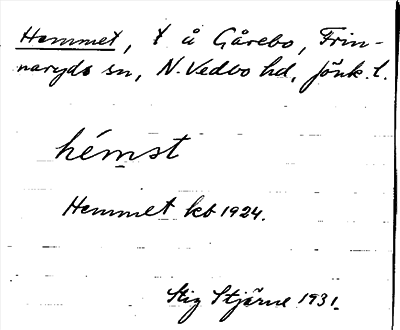 Hemmet, t å Gårebo, Frin-
naryds sn, N. Vedbo hd, Jönk. l.
hémst
Hemmet kb 1924.
Stig Stjärne 1931.